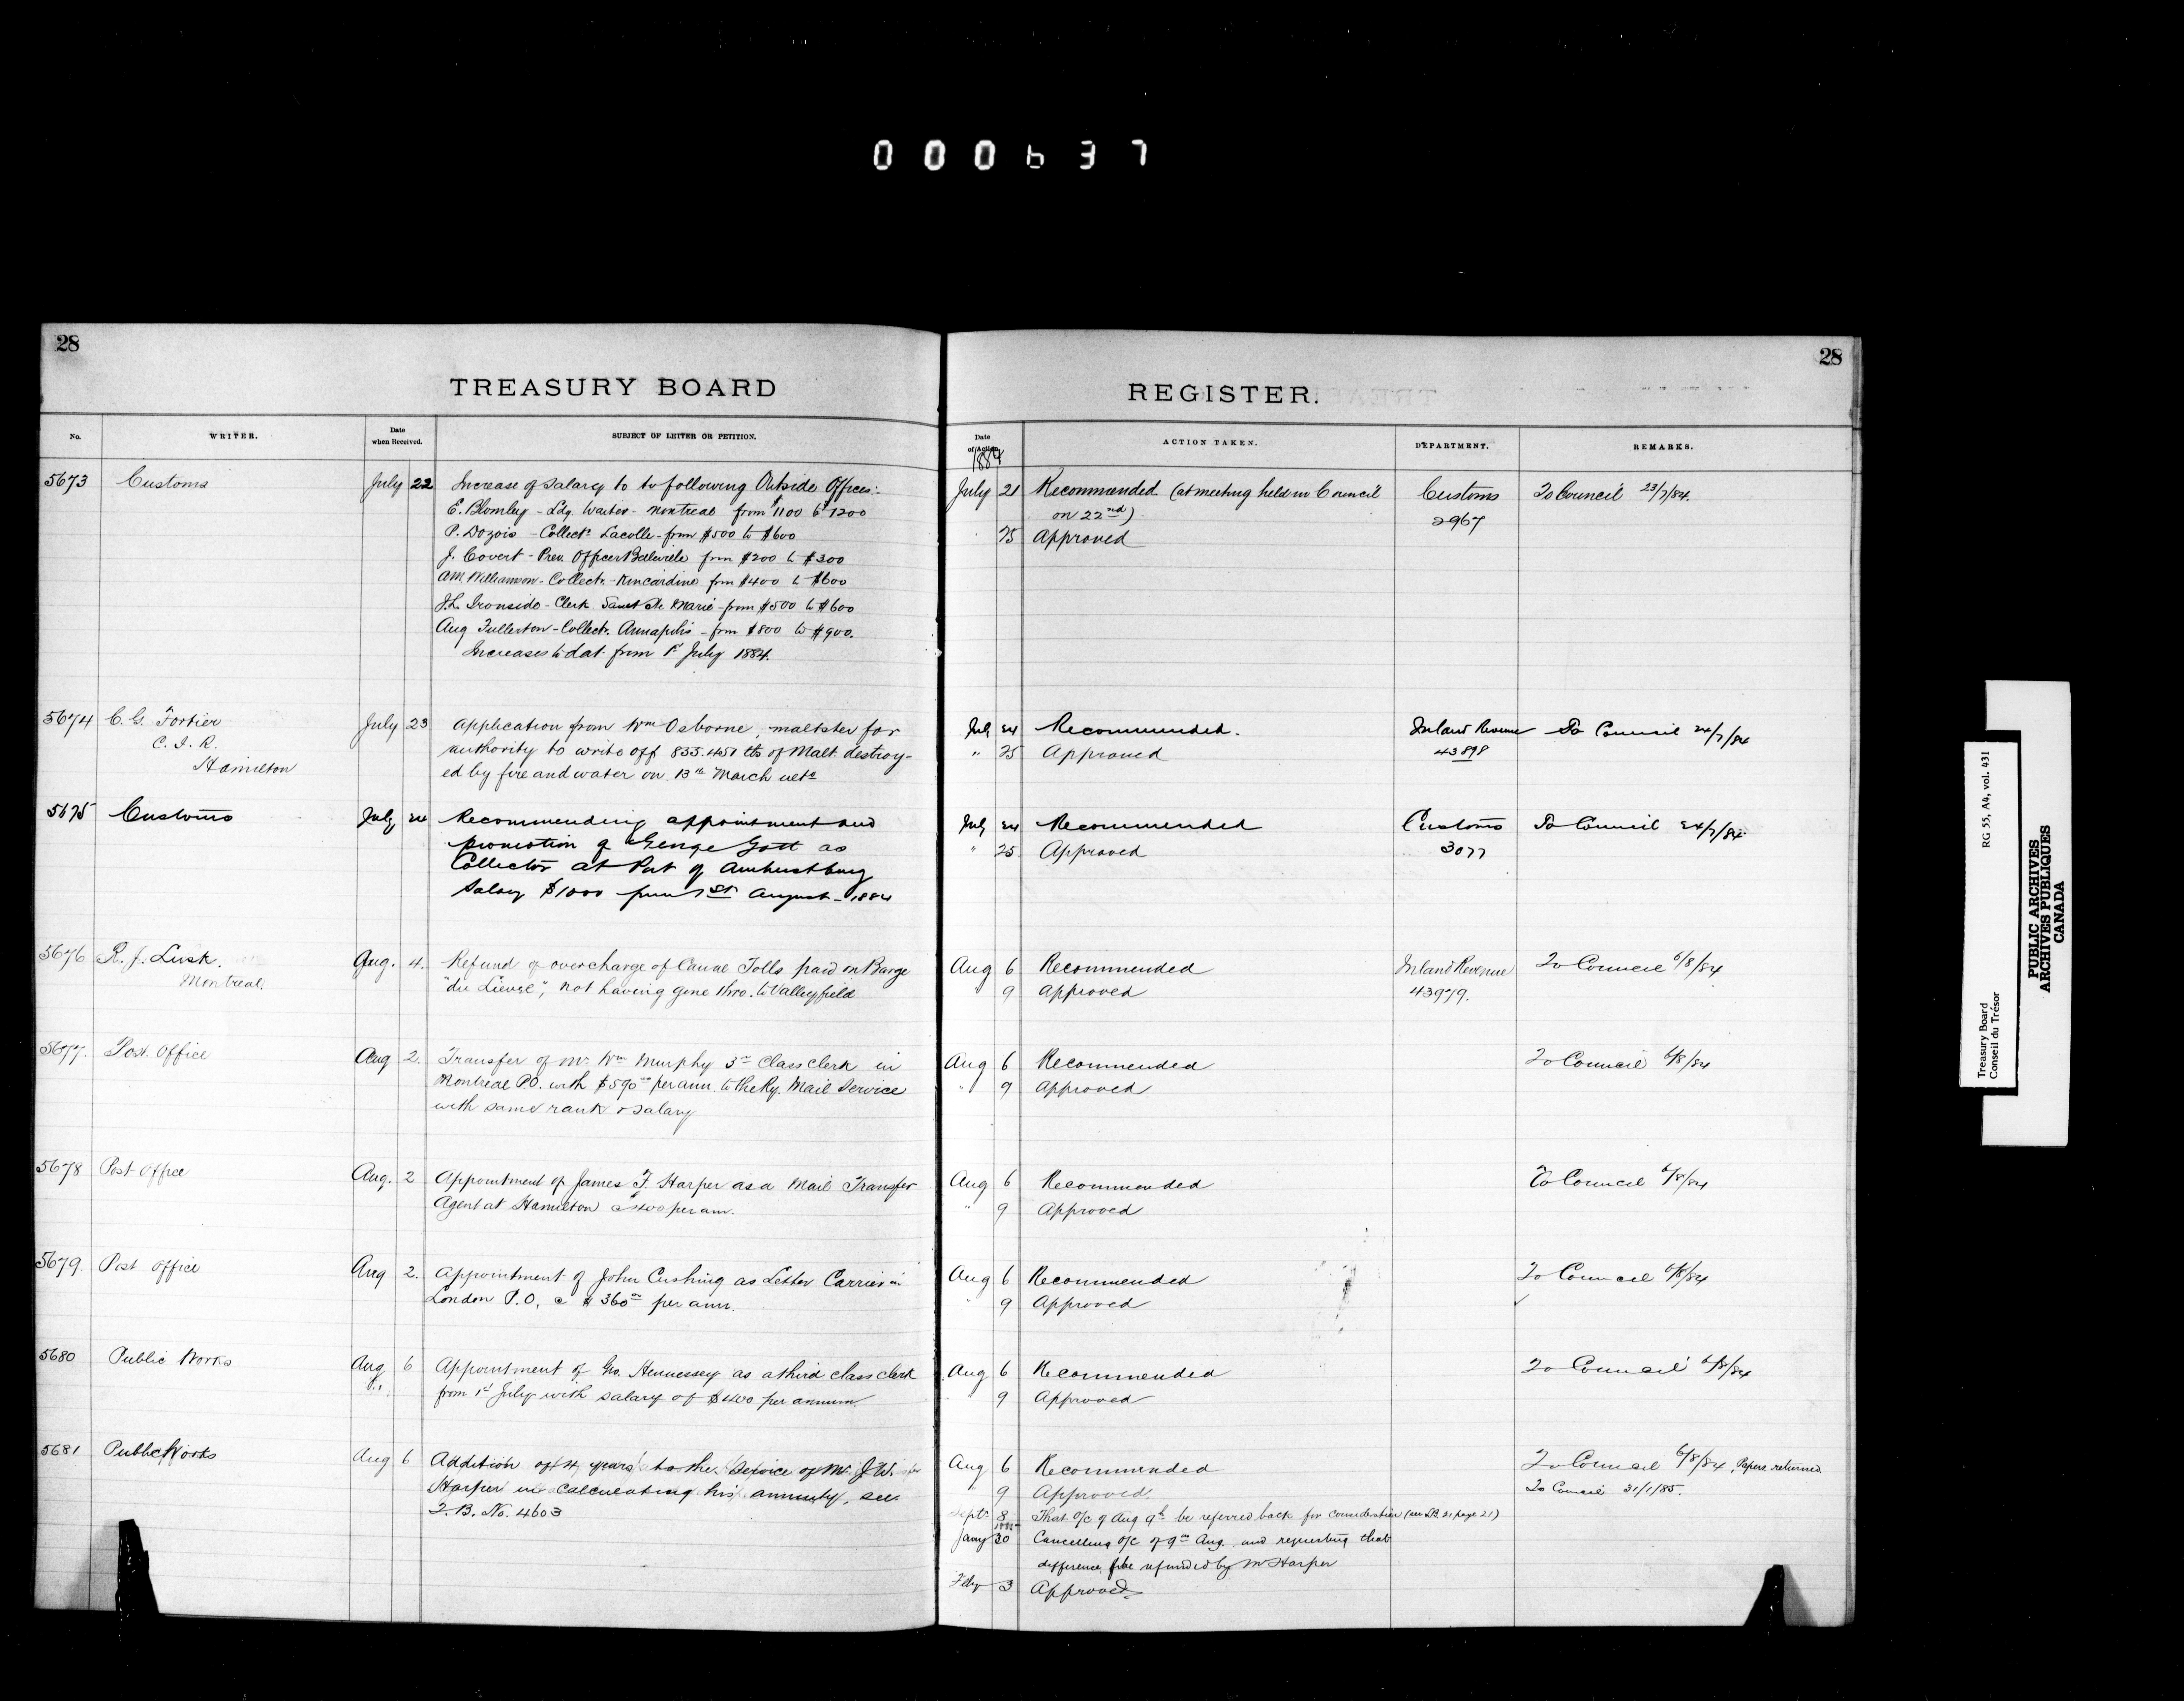 000637
28
TREASURY BOARD
No.
WRITER.
Date when Received.
SUBJECT OF LETTER OR PETITION.
5673 Customs July 22 Increase of Salary to following Outside Offices:-
E. Blomley - Ldg. Waiter - Montreal from $1100 to 1200
P. Dozois - Collectr Lacolle - from $500 to $600
J. Covert - Prev. Officer Belleville from $200 to $300
A.M. Williamson - Collectr. - Kincardine from $400 to $600
J.L. Ironside - Clerk Sault Ste Marie - from $500 to $600
Aug Fullerton - Collectr. Annapolis - from $800 to $900.
Increases to dat. from 1st July 1884.
5674 C. G. Fortier July 23 Application from Wm Osborne, maltster for
C. I. R. authority to write off 835.451 lbs of Malt destroy-
Hamilton ed by fire and water on 13th March ulto
5675 Customs July 24 Recommending appointment and
promotion of George Gott as
Collector at Port of Amherstburg
Salary $1000 from 1st August - 1884
5676 R. J. Lusk. Aug. 4. Refund of overcharge of Canal Tolls paid on Barge
Montreal. "du Lievre", not having gone thro. to Valleyfield
5677. Post. Office Aug 2. Transfer of Mr Wm Murphy 3rd Class Clerk in
Montreal P.O. with $590 00 per ann. to the Ry. Mail Service
with same rank & salary
5678 Post Office Aug. 2 Appointment of James F. Harper as a Mail Transfer
Agent at Hamilton $400 per ann.
5679 Post Office Aug 2. Appointment of John Cushing as Letter Carrier in
London P.O. @ $360 00 per ann.
5680 Public Works Aug 6 Appointment of Geo. Hennessey as a third class clerk
from 1st July with salary of $400 per annum.
5681 Public Works Aug 6 Addition of 4 years to the Service of Mr J. W.
Harper in calculating his annuity, see
T.B. No. 4603
28
REGISTER.
Date of Action
ACTION TAKEN.
DEPARTMENT.
REMARKS.
1884
July 21 Recommended (at meeting held in Council Customs To Council 23/7/84.
on 22nd) 2967
25 Approved
July 24 Recommended. Inland Revenue To Council 24/7/84
" 25 Approved 43898
July 24 Recommended Customs To Council 24/7/84
" 25 Approved 3077
Aug 6 Recommended Inland Revenue To Council 6/8/84
9 Approved 43979.
Aug 6 Recommended To Council 6/8/84
" 9 Approved
Aug 6 Recommended To Council 6/8/84
" 9 Approved
Aug 6 Recommended To Council 6/8/84
" 9 Approved
Aug 6 Recommended To Council 6/8/84
" 9 Approved
Aug 6 Recommended To Council 6/8/84, Papers returned.
9 Approved. To Council 31/1/85.
Septr 8 That O/C of Aug 9th be referred back for consideration (see LB. 21 page 21)
Jany 30 Cancelling O/C of 9th Aug. and requesting that
difference be refunded by Mr Harper
Feby 3 Approved
Treasury Board RG 55, A4, vol. 431
Conseil du Trésor
PUBLIC ARCHIVES
ARCHIVES PUBLIQUES
CANADA